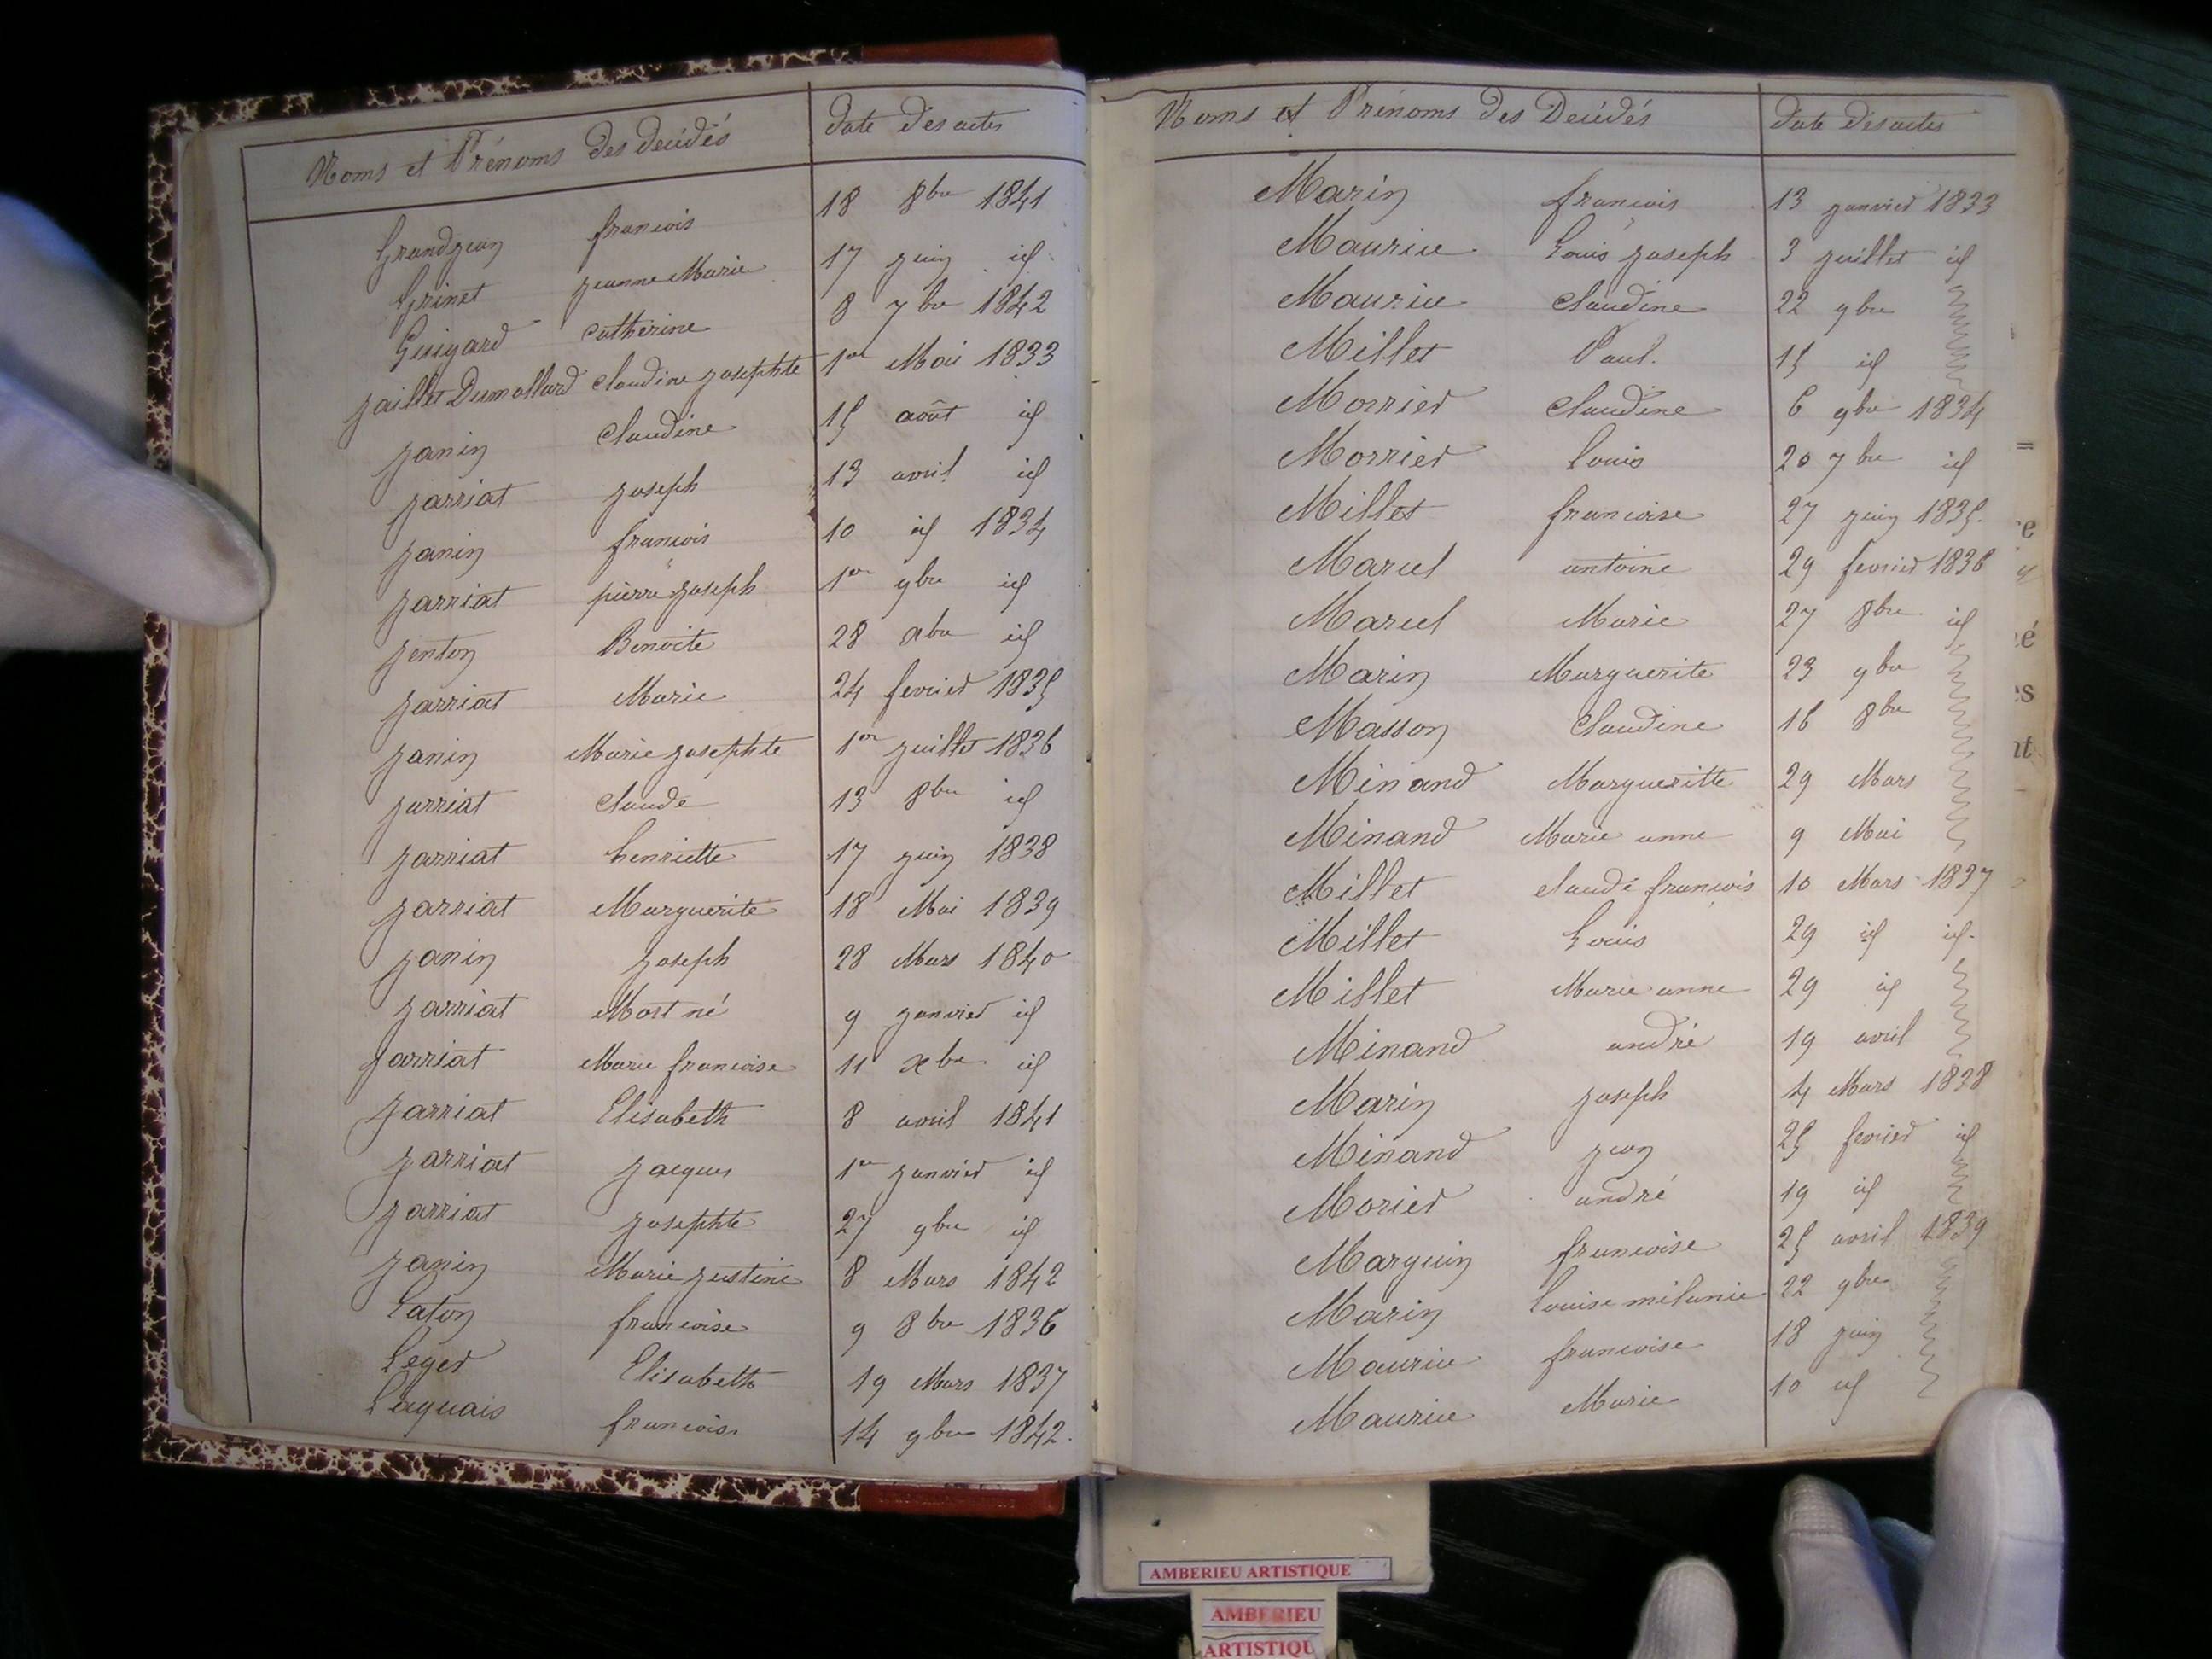 Noms et Prénoms des Décédés date des actes
Grandjean francois 18 8bre 1841
Grinet jeanne Marie 17 juin id
Guigard catherine 8 7bre 1842
jaillet Dumollard claudine josephte 1er Mai 1833
janin claudine 15 août id
jarriat joseph 13 avril id
janin francois 10 id 1834
jarriat pierre joseph 1er 9bre id
jenton Benoite 28 xbre id
jarriat Marie 24 fevrier 1835
janin Marie josephte 1er juillet 1836
jarriat claude 13 8bre id
jarriat henriette 17 juin 1838
jarriat Marguerite 18 Mai 1839
janin joseph 28 Mars 1840
jarriat Mort né 9 janvier id
jarriat Marie francoise 11 xbre id
jarriat Elisabeth 8 avril 1841
jarriat jacques 1er janvier id
jarriat josephte 27 9bre id
janin Marie justine 8 Mars 1842
Laton francoise 9 8bre 1836
Leger Elisabeth 19 Mars 1837
Laquais francois 14 9bre 1842.
Noms et Prénoms des Décédés date des actes
Marin francois 13 janvier 1833
Maurice Louis joseph 3 juillet id
Maurice claudine 22 9bre
Millet Paul. 15 id
Morrier claudine 6 9bre 1834
Morrier Louis 20 7bre id
Millet francoise 27 juin 1835.
Marcel antoine 29 fevrier 1836
Marcel Marie 27 8bre id
Marin Marguerite 23 9bre
Masson claudine 16 8bre
Minand Margueritte 29 Mars
Minand Marie anne 9 Mai
Millet claude francois 10 Mars 1837
Millet Louis 29 id id.
Millet Marie anne 29 id
Minand andré 19 avril
Marin joseph 4 Mars 1838
Minand jean 25 fevrier id
Morier andré 19 id
Marguin francoise 25 avril 1839
Marin Louise milanie 22 9bre
Maurice francoise 18 juin
Maurice Marie 10 id
AMBERIEU ARTISTIQUE
AMBERIEU
ARTISTIQU